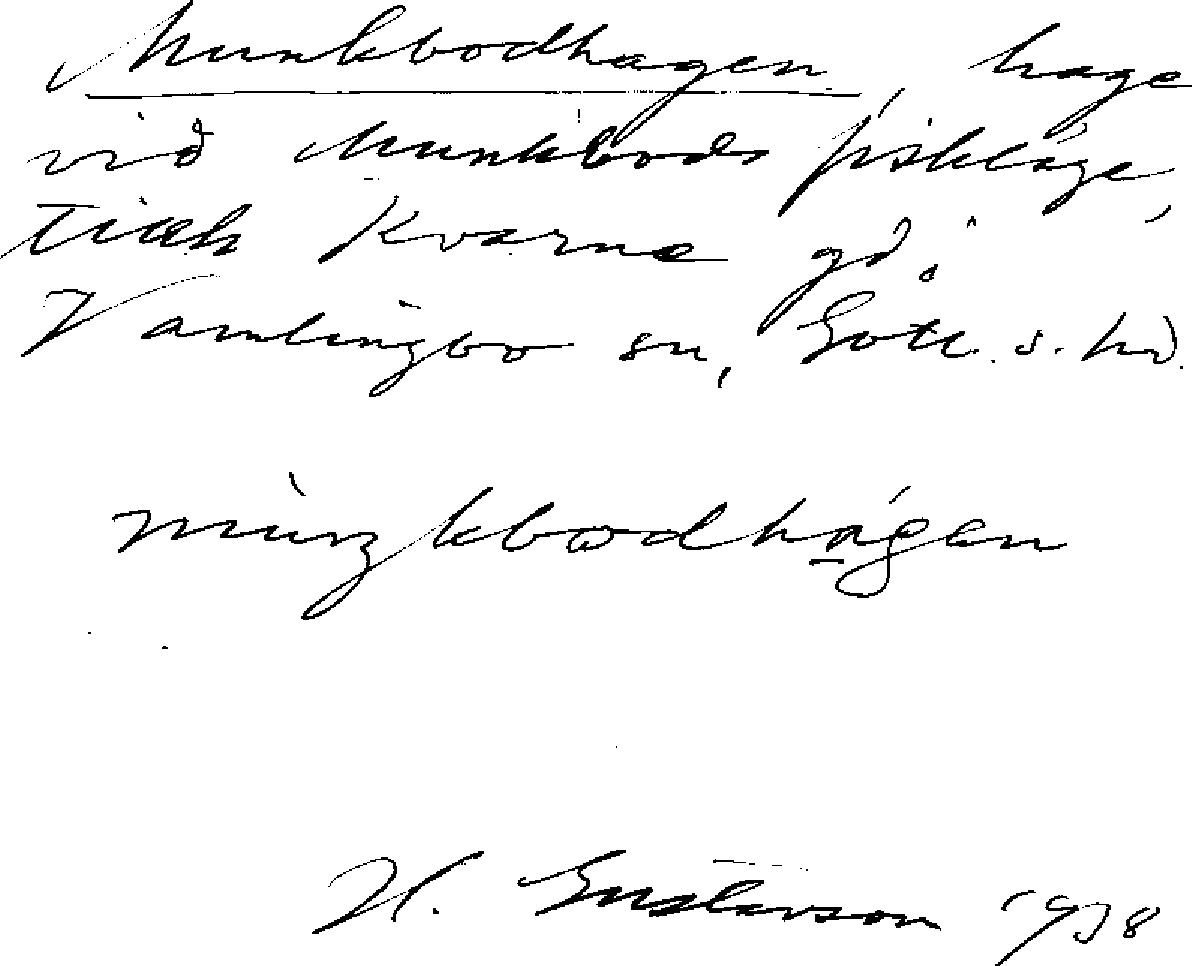 Munkbodhagen, hage
vid Munkbods fiskläge,
tillh Kvarne gd;
Vamlingbo sn, Gotl. s. hd.
mùŋkbodhágen
H. Gustavson 1938